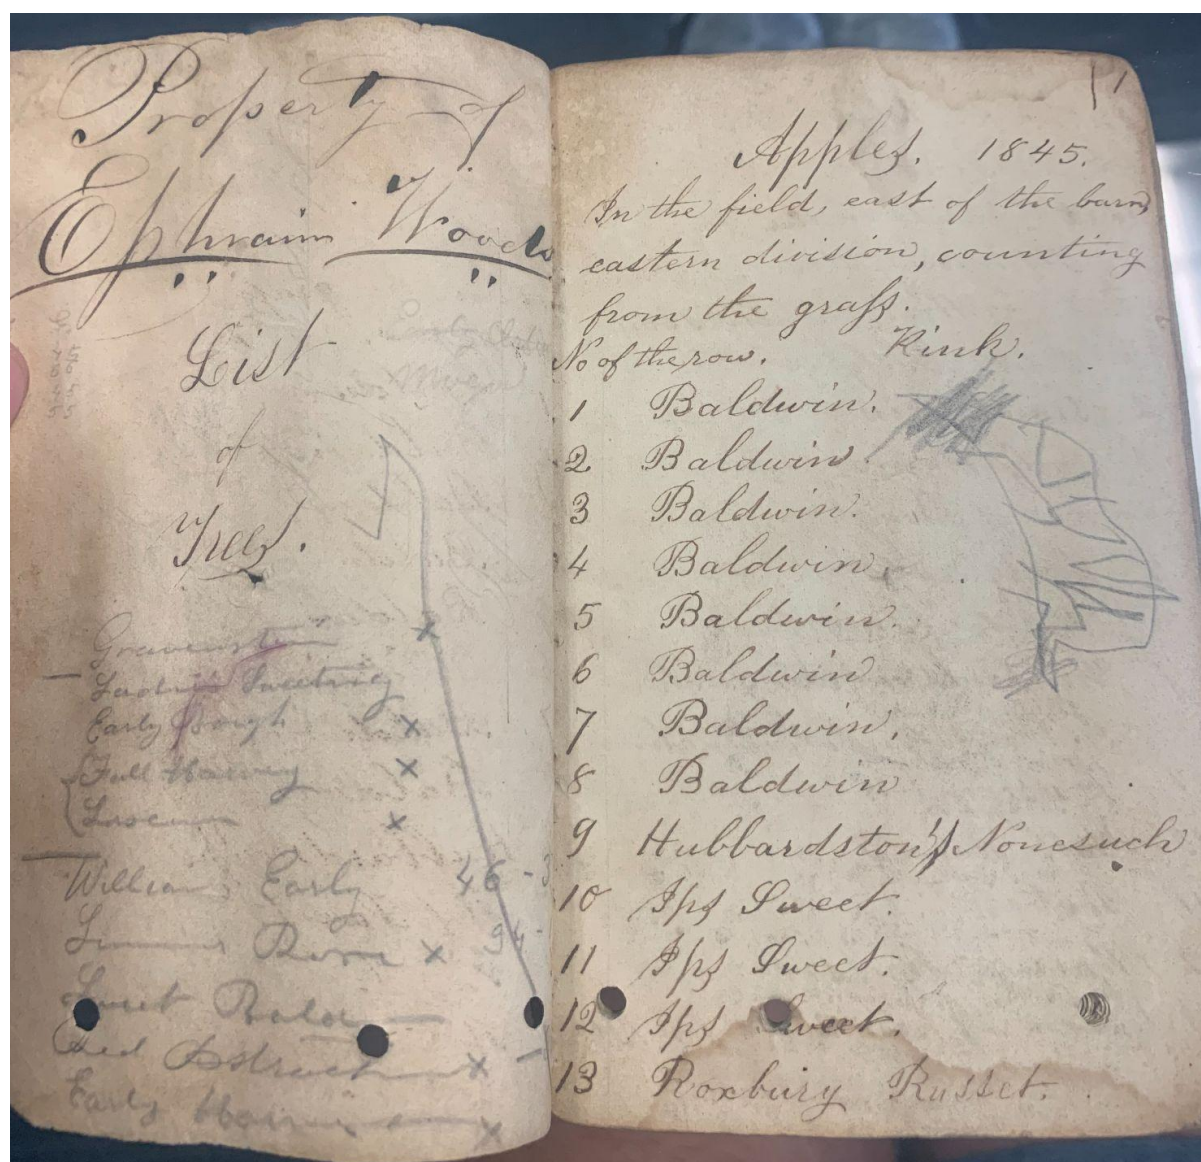 Property of
Ephraim Woods
List
of
Trees.
Gravenstein x
Sweeting
Early Bough x
Fall Harvey x
x
William Early 46-3
Summer Rose x 94-
Sweet Bald —
Red x -
Early Harvest x
Apples. 1845.
In the field, east of the barn,
eastern division, counting
from the grass.
No of the row. Kink.
1 Baldwin.
2 Baldwin.
3 Baldwin.
4 Baldwin.
5 Baldwin.
6 Baldwin
7 Baldwin.
8 Baldwin
9 Hubbardston's Nonesuch
10 Ips Sweet.
11 Ips Sweet.
12 Ips Sweet.
13 Roxbury Russet.